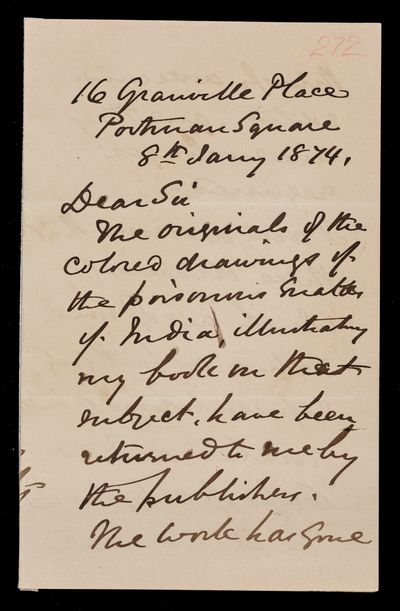 272
16 Granville Place
Portman Square
8th Jany 1874.
Dear Sir
The originals of the
colored drawings of
the poisonous Snakes
of India, illustrating
my book on that
subject, have been
returned to me by
the publishers.
The work has gone